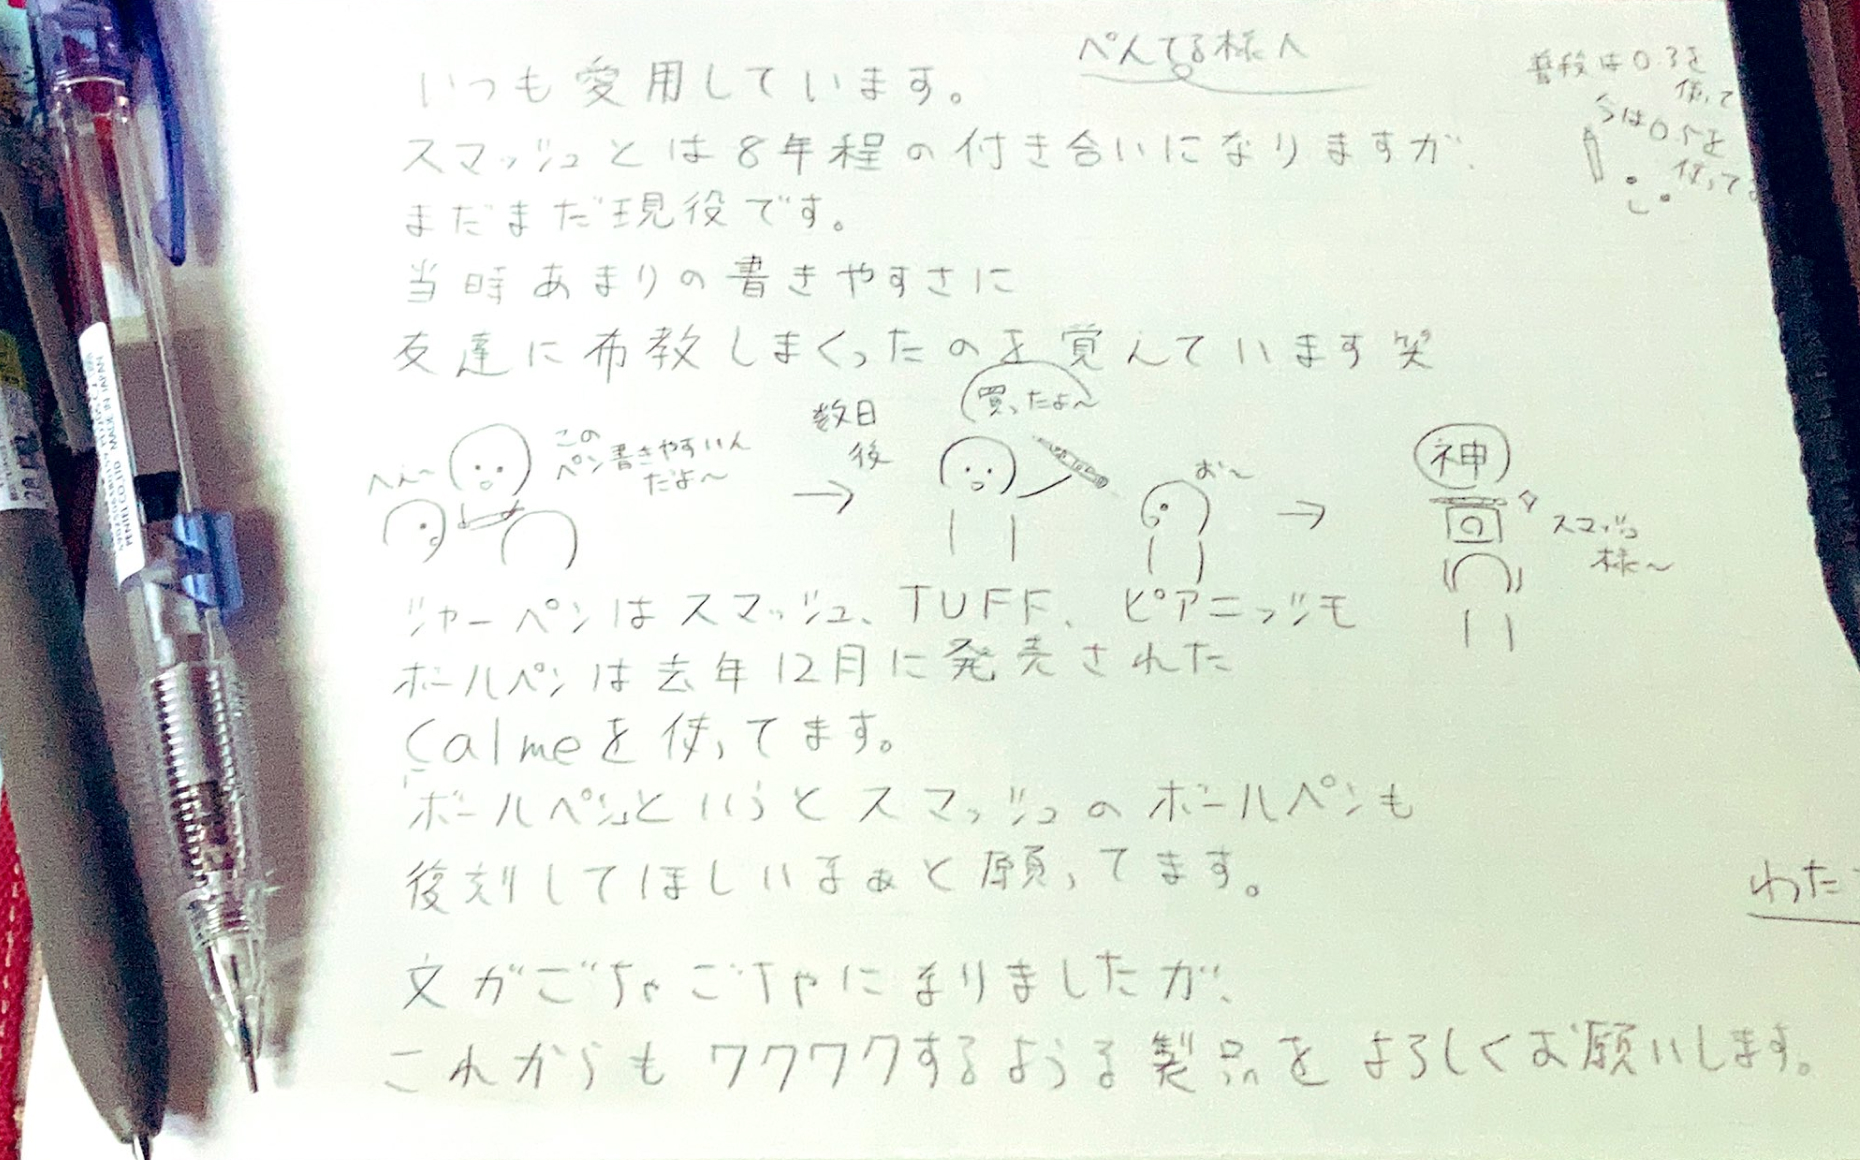 ぺんてる様へ
いつも愛用しています。
スマッシュとは8年程の付き合いになりますが、
まだまだ現役です。
当時あまりの書きやすさに
友達に布教しまくったのを覚えています笑
普段は0.3を
使って
今は0.5を
使って
へぇ〜
この
ペン書きやすいん
だよ〜
数日
後
買ったよ〜
お〜
神
スマッシュ
様〜
シャーペンはスマッシュ、TUFF、ピアニッシモ
ボールペンは去年12月に発売された
Calmeを使ってます。
「ボールペン」というとスマッシュのボールペンも
復刻してほしいなぁと願ってます。
わた
文がごちゃごちゃになりましたが、
これからもワクワクするような製品をよろしくお願いします。